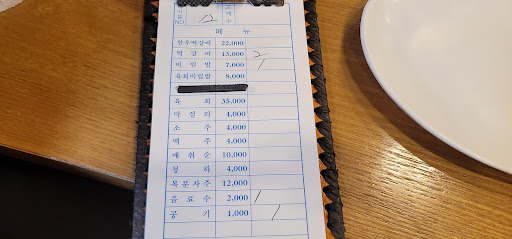 테이블 NO. 12 고객수
메 뉴
한우떡갈비 22,000
떡 갈 비 13,000 2
비 빔 밥 7,000 /
육회비빔밥 8,000
육 회 35,000
막 걸 리 4,000
소 주 4,000
맥 주 4,000
매 취 순 10,000
청 하 4,000
복 분 자 주 12,000
음 료 수 2,000 /
공 기 1,000 /